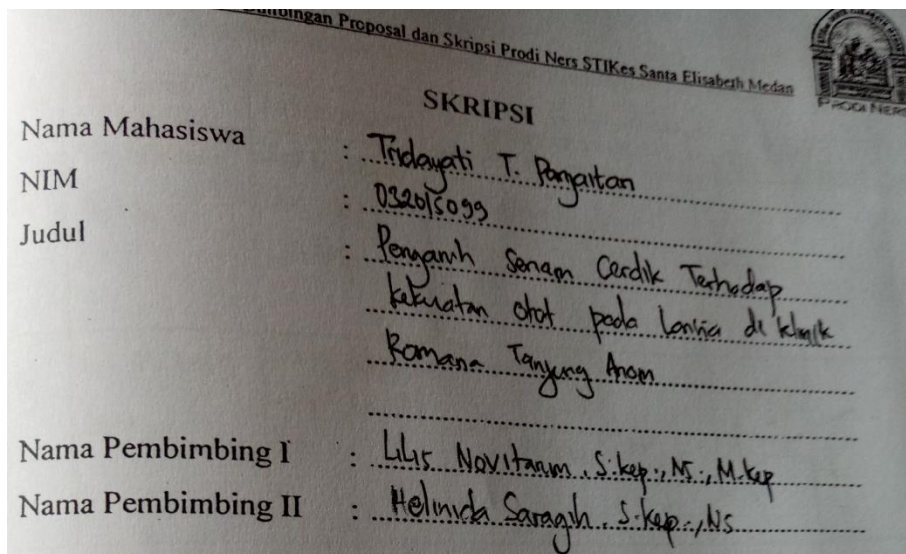 Bimbingan Proposal dan Skripsi Prodi Ners STIKes Santa Elisabeth Medan
PRODI NERS
SKRIPSI
Nama Mahasiswa : Tridayati T. Pangaitan
NIM : 032015099
Judul : Pengaruh Senam Cerdik Terhadap
kekuatan otot pada Lansia di klinik
Romana Tanjung Anom
Nama Pembimbing I : Lilis Novitarum, S.kep., Ns., M.kep
Nama Pembimbing II : Helinida Saragih, S.kep., Ns